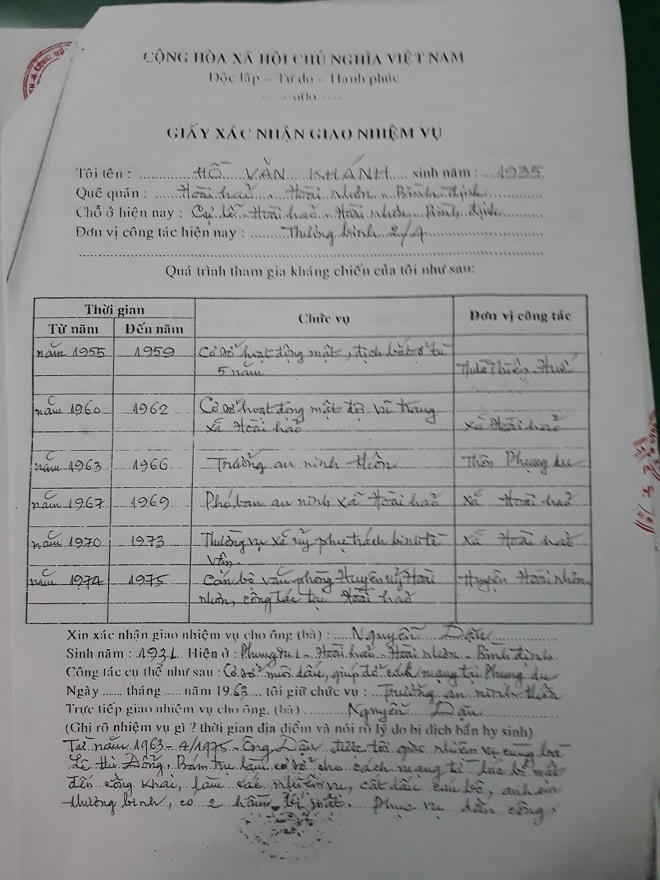 CỘNG HÒA XÃ HỘI CHỦ NGHĨA VIỆT NAM
Độc lập – Tự do – Hạnh phúc
o0o
GIẤY XÁC NHẬN GIAO NHIỆM VỤ
Tôi tên : HỒ VĂN KHÁNH sinh năm : 1935
Quê quán : Hoài hảo - Hoài nhơn - Bình định
Chỗ ở hiện nay : Cự lễ - Hoài hảo - Hoài nhơn - Bình định
Đơn vị công tác hiện nay : Thương binh 2/4
Quá trình tham gia kháng chiến của tôi như sau:
Thời gian Chức vụ Đơn vị công tác
Từ năm Đến năm
năm 1955 1959 Cơ sở hoạt động mật, địch bắt ở tù
5 năm Thừa Thiên Huế
năm 1960 1962 Cơ sở hoạt động mật đội vũ trang
xã Hoài hảo xã Hoài hảo
năm 1963 1966 Trưởng an ninh thôn Thôn Phụng du
năm 1967 1969 Phó ban an ninh xã Hoài hảo xã Hoài hảo
năm 1970 1973 Thường vụ xã ủy phụ trách binh tề
vận. xã Hoài hảo
năm 1974 1975 Cán bộ văn phòng Huyện ủy Hoài
nhơn, công tác tại Hoài hảo Huyện Hoài nhơn
Xin xác nhận giao nhiệm vụ cho ông (bà) : Nguyễn Dậu
Sinh năm : Hiện ở : Phụng du 1 - Hoài hảo - Hoài nhơn - Bình định
Công tác cụ thể như sau : Cơ sở nuôi dấu, giúp đỡ cách mạng tại Phụng du
Ngày ...... tháng ...... năm 1963 tôi giữ chức vụ : Trưởng an ninh thôn
Trực tiếp giao nhiệm vụ cho ông. (bà) Nguyễn Dậu
(Ghi rõ nhiệm vụ gì ? thời gian địa điểm và nói rõ lý do bị địch bắn hy sinh)
Từ năm 1963 - 4/1975 - Ông Dậu được tôi giao nhiệm vụ cùng bà
Lê thị Đồng. Bám trụ làm cơ sở cho cách mạng từ lúc bí mật
đến công khai, làm nhiệm vụ, cất dấu cán bộ, anh em
thương binh, có 2 hầm bí mật. Phục vụ dân công.